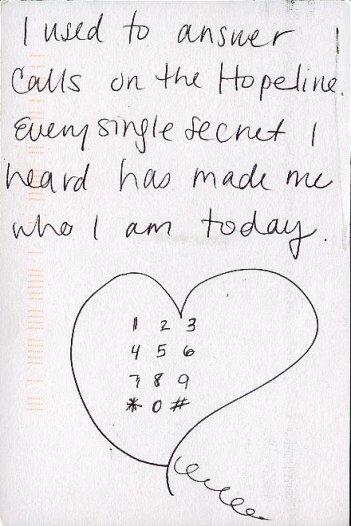 I used to answer
Calls on the Hopeline.
Every single secret I
heard has made me
who I am today.
1 2 3
4 5 6
7 8 9
* 0 #